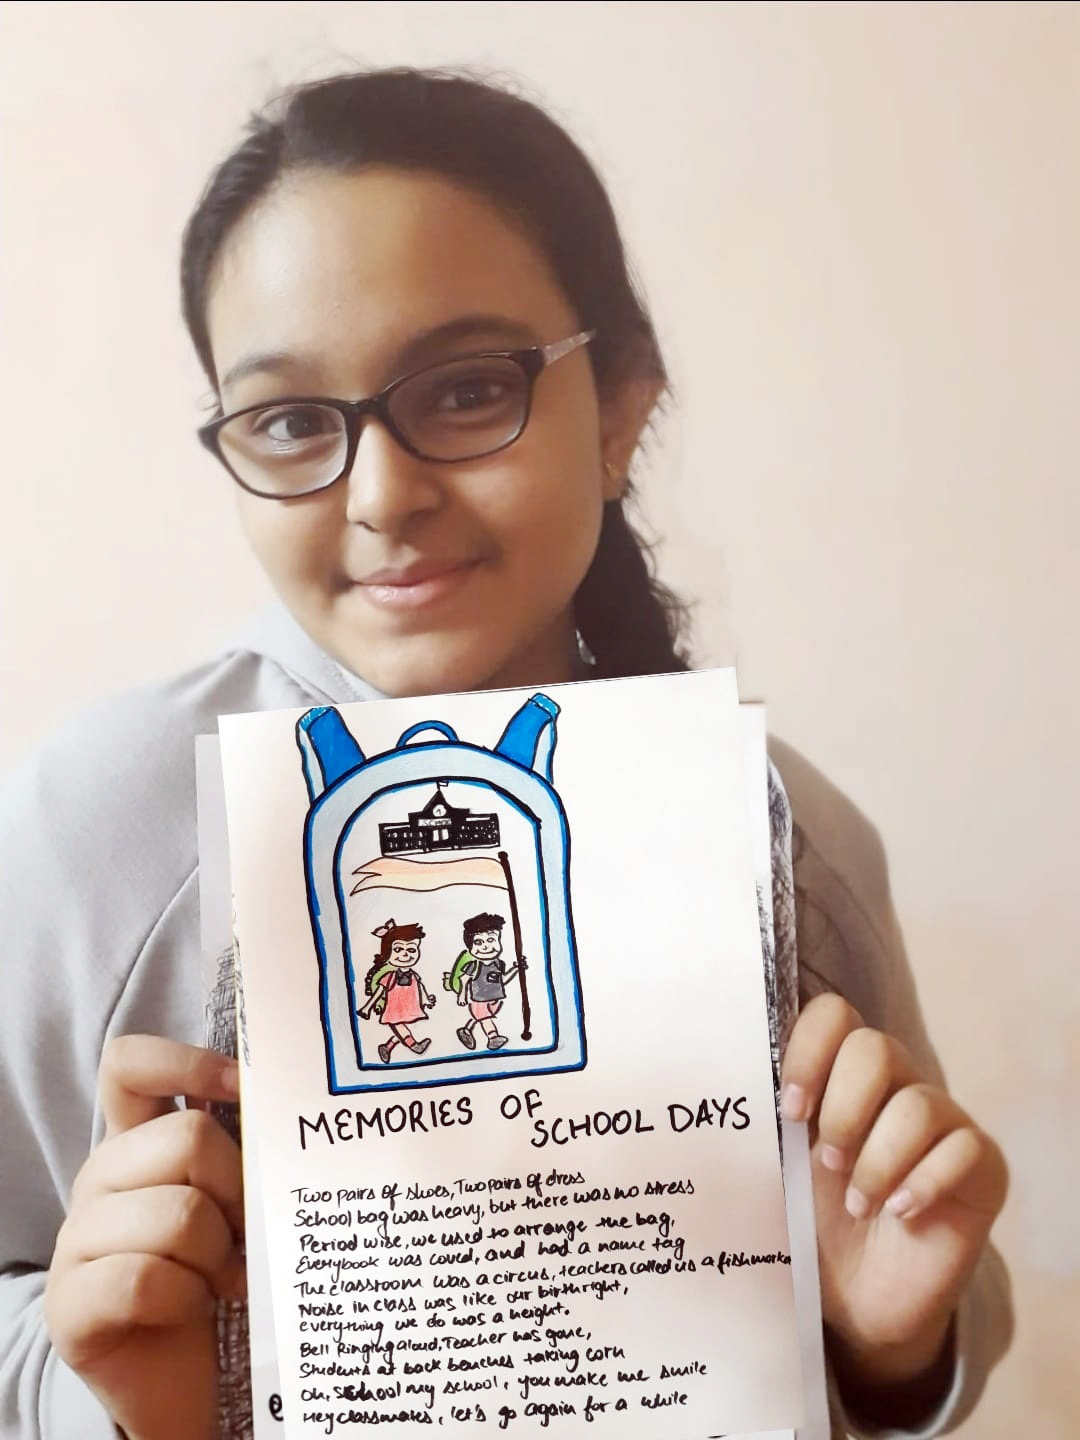 SCHOOL
MEMORIES OF
SCHOOL DAYS
Two pairs of shoes, Two pairs of dress
School bag was heavy, but there was no stress
Period wise, we used to arrange the bag,
Everybook was coved, and had a name tag
The classroom was a circus, teachers called us a fishmarke
Noise in class was like our birthright,
everything we do was a height.
Bell Ringing aloud, Teacher has gone,
Students at back benches taking corn
Oh, School my school, you make me smile
Hey classmates, let's go again for a while
e